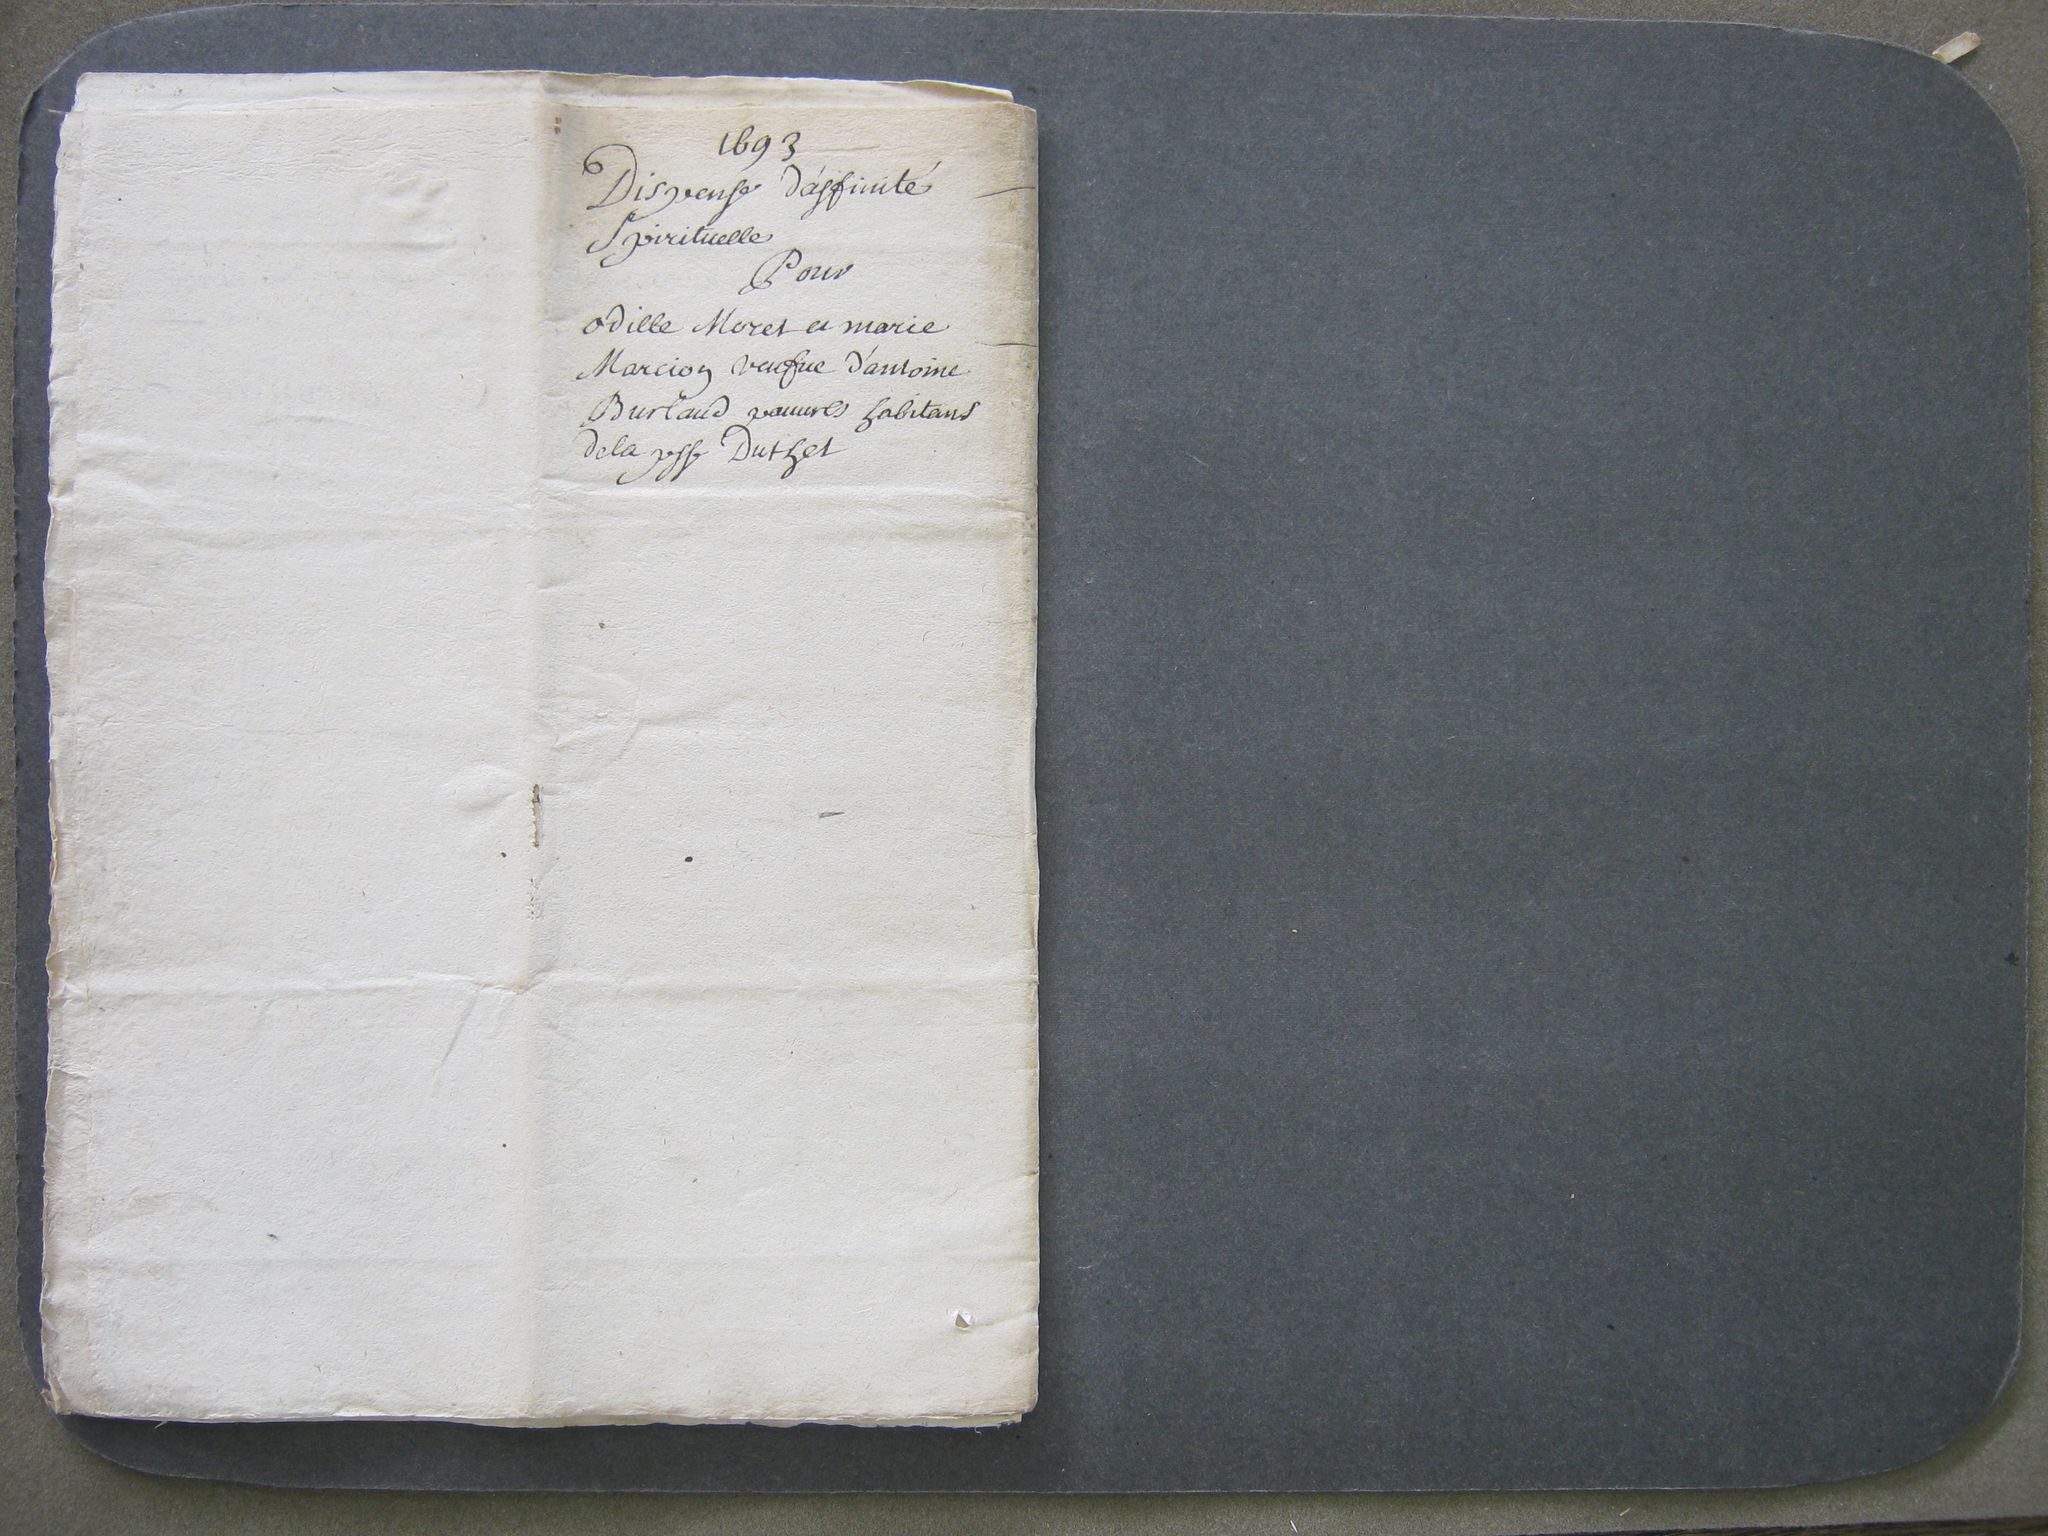 1693
Dispense d'affinité
Spirituelle
Pour
odille Moret et marie
Marcion veufue d'antoine
Burlaud pauures habitans
dela psse Duthet